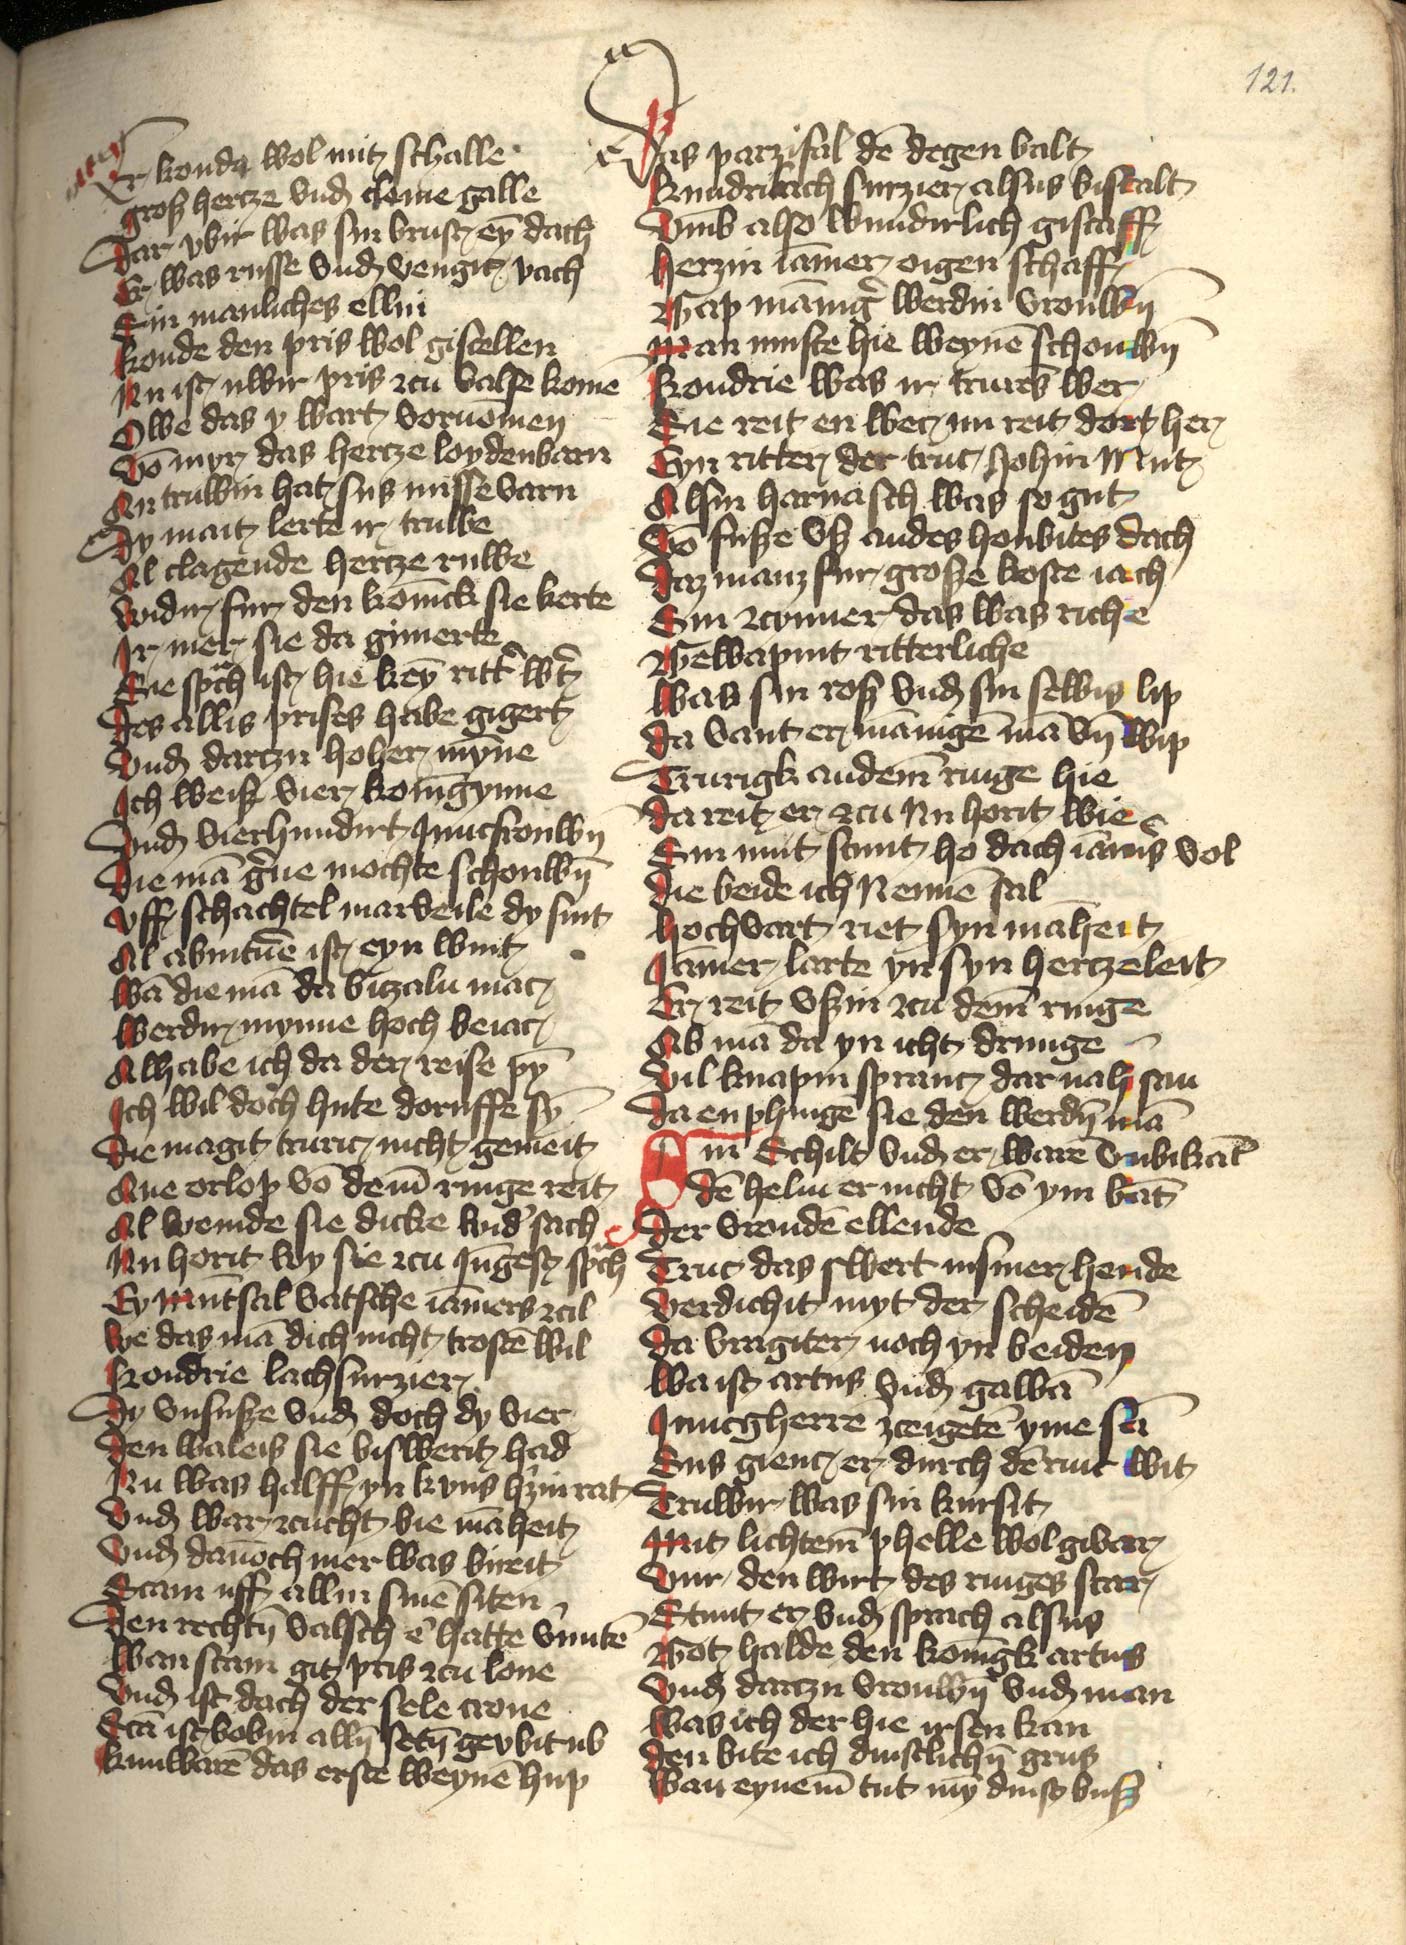 121.
Er konde wol mit schalle
groß hertze vnd cleine galle
Dar vbir was sin brust eȳ dach
Er was russe vnd vengit vach
Sin manliches ellin
konde den pris wol gistellen
Nu ist uwir pris zcu valse komē
Owe das y wart vornomen
Vō myr das hertze loydenbarn
An truwin hat sus misse varn
Dy mait lerte ir truwe
Al clagende hertze ruwe
Widir fur den konick sie kerte
Ir mer sie da gimerte
Sie sp͛ch ist hie keȳ ritt͛ w͛t
Des allis prises habe gigert
Vnd dartzu hoher mȳne
Ich weiß vier konigynne
Vnd vierhundirt Juncfrouwȳ
Die mā g͛ne mochte schouwȳ
Vff schachtel marveile dy sint
Al abintūe ist eyn wint
Wā die mā da bizalu mac
Werdir mynne hoch beiac
Al habe ich da der reise pȳ
Ich wil doch hute doruffe sȳ
Die magit truric nicht gemeit
Ane orlop vō dem̄ ringe reit
Al weinde sie dicke wid͛ sach
Nu horit wy sie zcu Jūgest sp͛ch
Ey mūtsal vatsche iāmers zcil
We das mā dich nicht trostē wil
Kondrie lachsurzier
Dy vnsuße vnd doch dy vier
Den waleis sie biswerit had
Nu was halff yn kyns h͛zin rat
Vnd war zcucht bie māheit
Vnd dānoch mer was bireit
Scam uff allin sinē siten
Den rechtȳ valsch e͛ hatte v͛mitē
Wan scam git pris zcu lone
Vnd ist dach der sele crone
Scā ist bobin allȳ setȳ gevbit ub
Kunwarē das erste weynē hup
Das parzifal dē degen balt
Kundrilach surzier alsus bistalt
Vmb also wundirlich gistaff
Herzin iāmer oigen schaff
Gap mānig͛ werdin vrouwȳ
Man muste hie weynē schouwȳ
Kondrie was ir trurēs wer
Sie reit en wec nu reit dort her
Eyn ritter der truc Hohin Mut
Al sin harnasch was so gut
Vō fuße vß an des houbites dach
Daz manz fur große koste iach
Sin zcymier das was riche
Gewapint ritterliche
Was sin roß vnd sin selbis lip
Da vant er mānigē mā vn̄ wip
Trurigk an dem̄ ringe hie
Da reit er zcu Nu horit wie
Sin mut stunt ho dach iāmers vol
Die beide ich Nennē sal
Hochvart riet syn māheit
Jāmer larte yn syn hertzeleit
Er reit vßin zcu dem̄ ringe
Ab mā da yn icht drunge
Vil knapin spranc dar nah san
Da en phingē sie den werdȳ mā
Sin Schilt vnd er warē vnbikāt
dē helm er nicht vō ym bāt
Der vroudē ellende
Truc das swert in siner hende
Verdichit myt der scheidē
Da vragiter noch yn beiden
Wa ist artus vnd gawā
Juncgherre zceigetē yme sā
Sus gienc er durch dē rinc wit
Truwir was sin kursit
Mit lichtem̄ phelle wol givar
Vur den wirt des ringes scar
Stunt er vnd sprach alsus
Got halde den konigk artus
Vnd dartzu vrouwȳ vnd man
Was ich der hie irsen kan
Den bite ich dinstlichȳ grus
Wan eynem̄ tut mȳ dinst buß